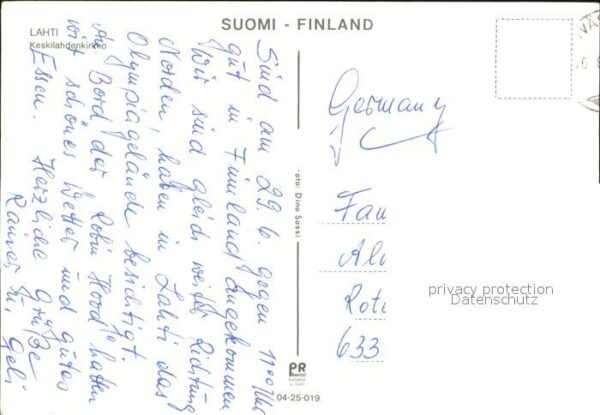 SUOMI - FINLAND
LAHTI
Keskilahdenkirkko
Sind am 29.6. gegen 11⁰⁰ Uhr
gut in Finnland angekommen
Wir sind gleich weiter Richtung
Norden, haben in Lahti das
Olympiagelände besichtigt.
An Bord der "Robin Hood" hatten
wir schönes Wetter und gutes
Essen. Herzliche Grüße
Rainer u. Geli
Foto: Dino Sassi
PR
04-25-019
Germany
Fam
Al
Rote
633
privacy protection
Datenschutz